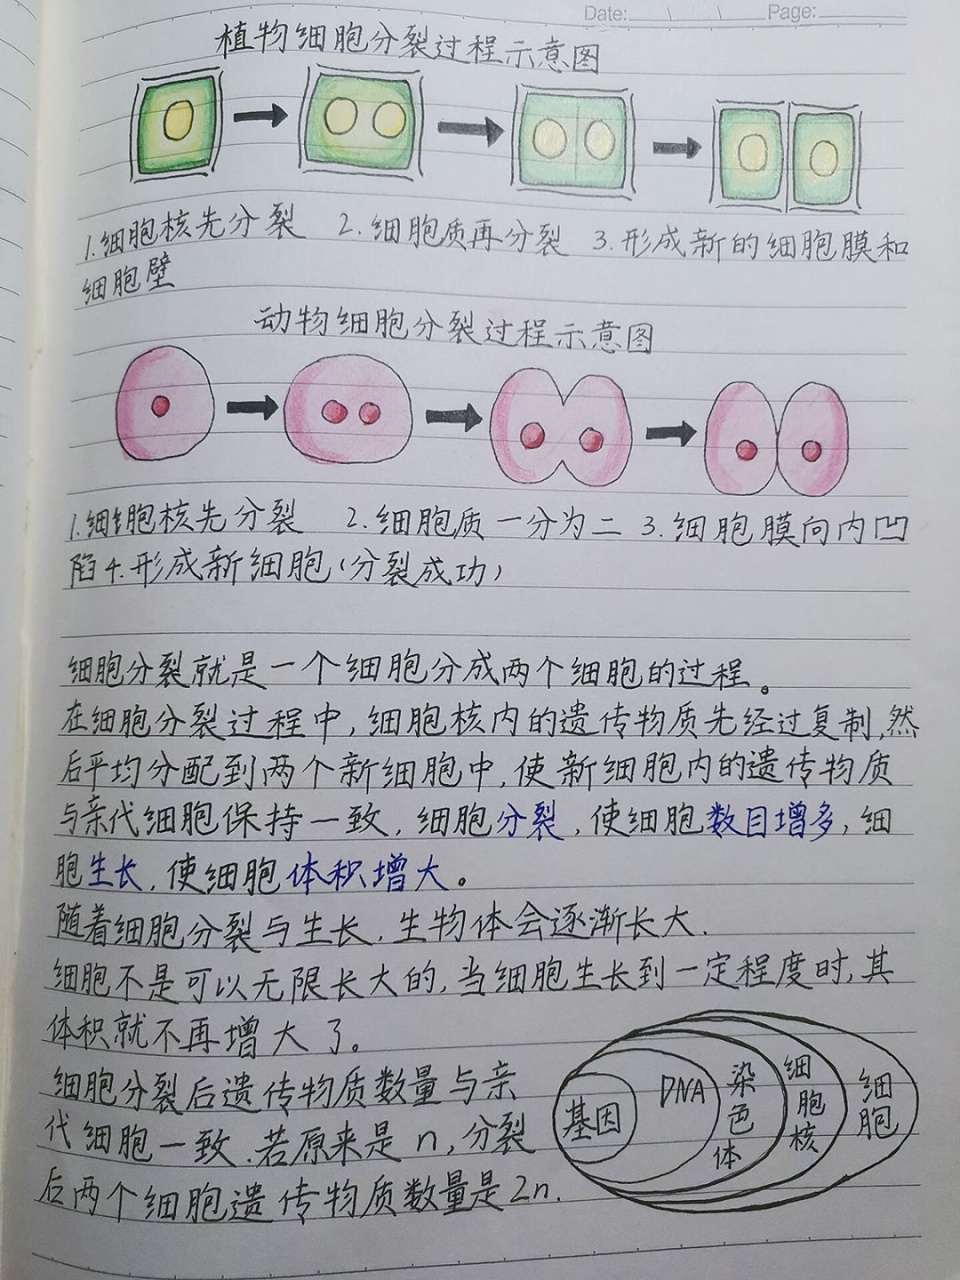 Date: Page:
植物细胞分裂过程示意图
1.细胞核先分裂 2.细胞质再分裂 3.形成新的细胞膜和
细胞壁
动物细胞分裂过程示意图
1.细胞核先分裂 2.细胞质一分为二 3.细胞膜向内凹
陷4.形成新细胞(分裂成功)
细胞分裂就是一个细胞分成两个细胞的过程。
在细胞分裂过程中,细胞核内的遗传物质先经过复制,然
后平均分配到两个新细胞中,使新细胞内的遗传物质
与亲代细胞保持一致,细胞分裂,使细胞数目增多,细
胞生长,使细胞体积增大。
随着细胞分裂与生长,生物体会逐渐长大.
细胞不是可以无限长大的,当细胞生长到一定程度时,其
体积就不再增大了。
细胞分裂后遗传物质数量与亲
代细胞一致.若原来是n,分裂
后两个细胞遗传物质数量是2n.
基因 DNA 染色体 细胞核 细胞